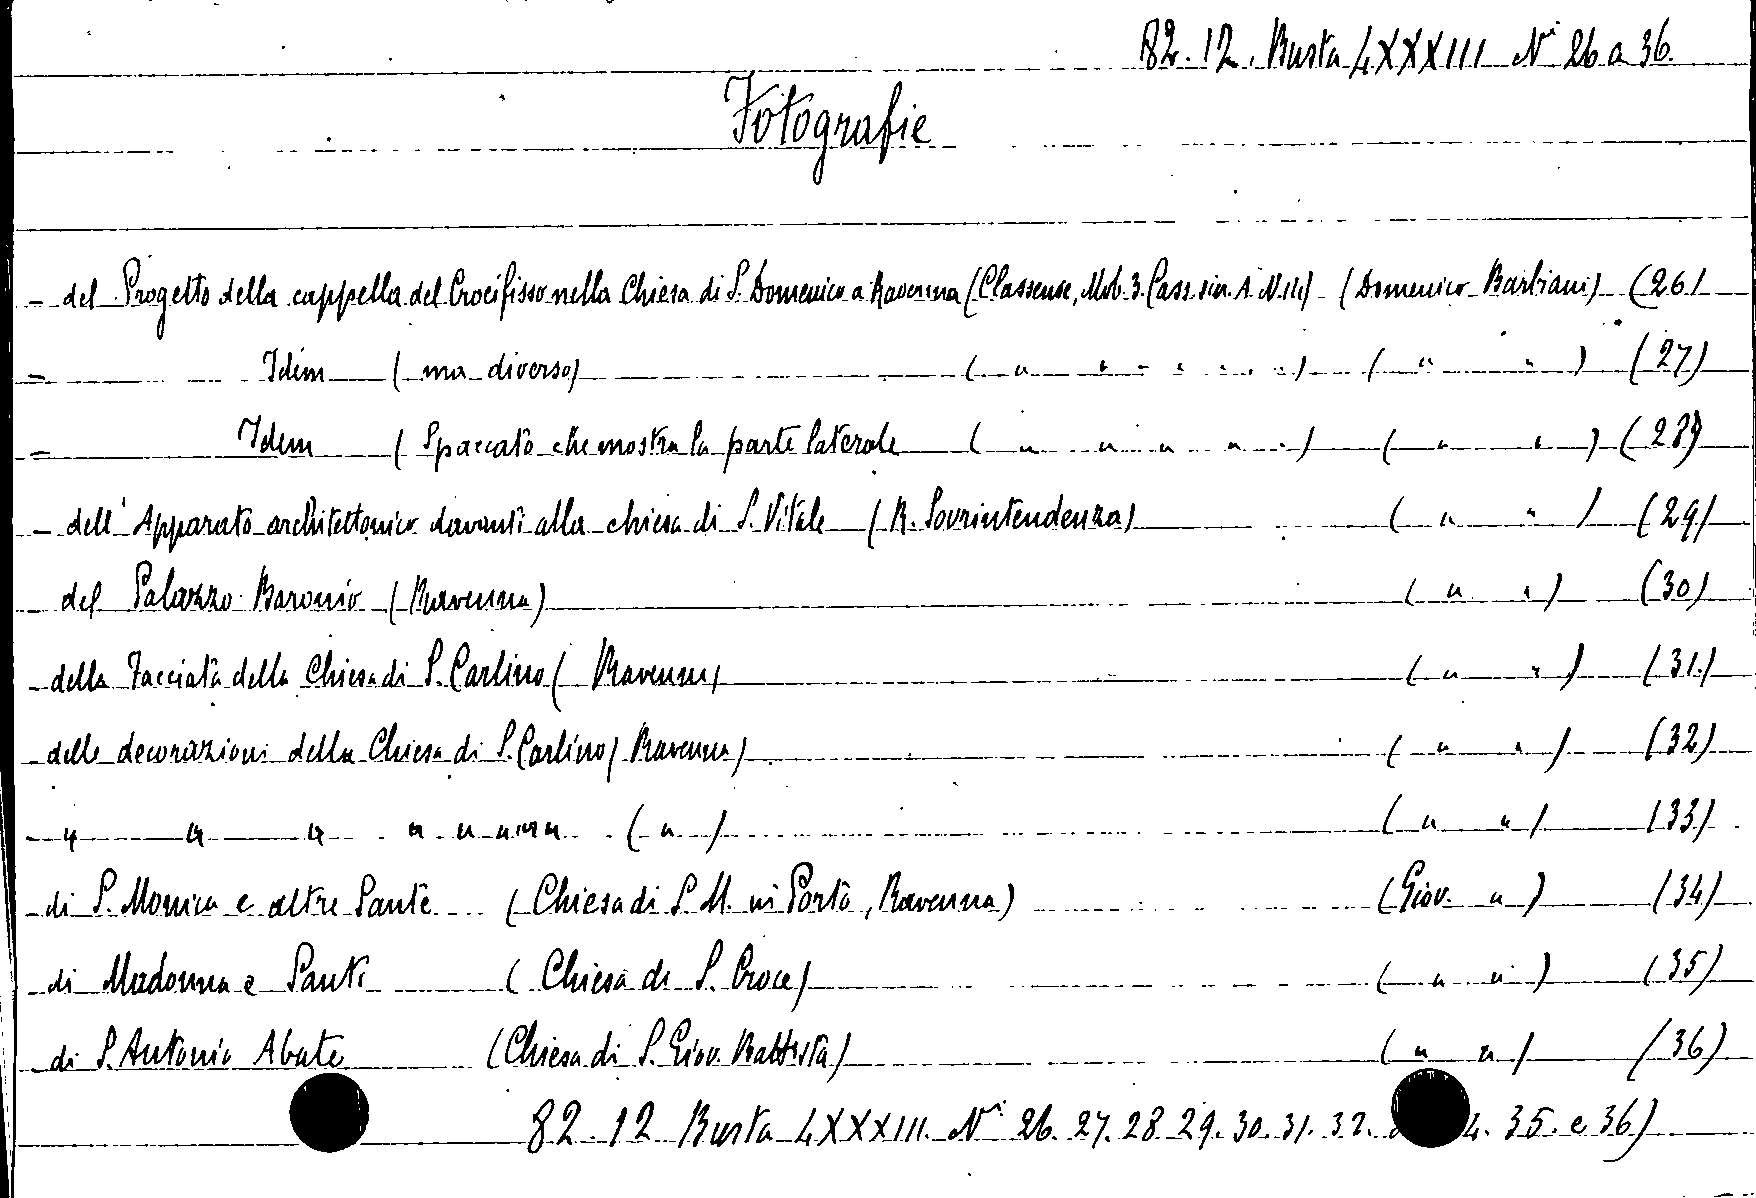 82.12. Busta LXXXIII Ni 26 a 36.
Fotografie
- del Progetto della cappella del Crocifisso nella Chiesa di S. Domenico a Ravenna (Classense, Mob. 3. Cass. sin. A. N. 14) (Domenico Barbiani) (26)
- Idem (ma diverso) ( " " " " " " ) ( " " ) (27)
- Idem (Spaccato che mostra la parte laterale ( " " " " " ) ( " " ) (28)
- dell'Apparato architettonico davanti alla chiesa di S. Vitale (R. Sovrintendenza) ( " " ) (29)
- del Palazzo Baronio (Ravenna) ( " " ) (30)
- della Facciata della Chiesa di S. Carlino (Ravenna) ( " " ) (31)
- delle decorazioni della Chiesa di S. Carlino (Ravenna) ( " " ) (32)
- " " " " " " " " ( " ) ( " " ) (33)
- di S. Monica e altre Sante (Chiesa di S. M. in Porto, Ravenna) (Giov. " ) (34)
- di Madonna e Santi (Chiesa di S. Croce) ( " " ) (35)
- di S. Antonio Abate (Chiesa di S. Giov. Battista) ( " " ) (36)
82.12 Busta LXXXIII. Ni 26. 27. 28 29. 30. 31. 32. 4. 35. e 36)